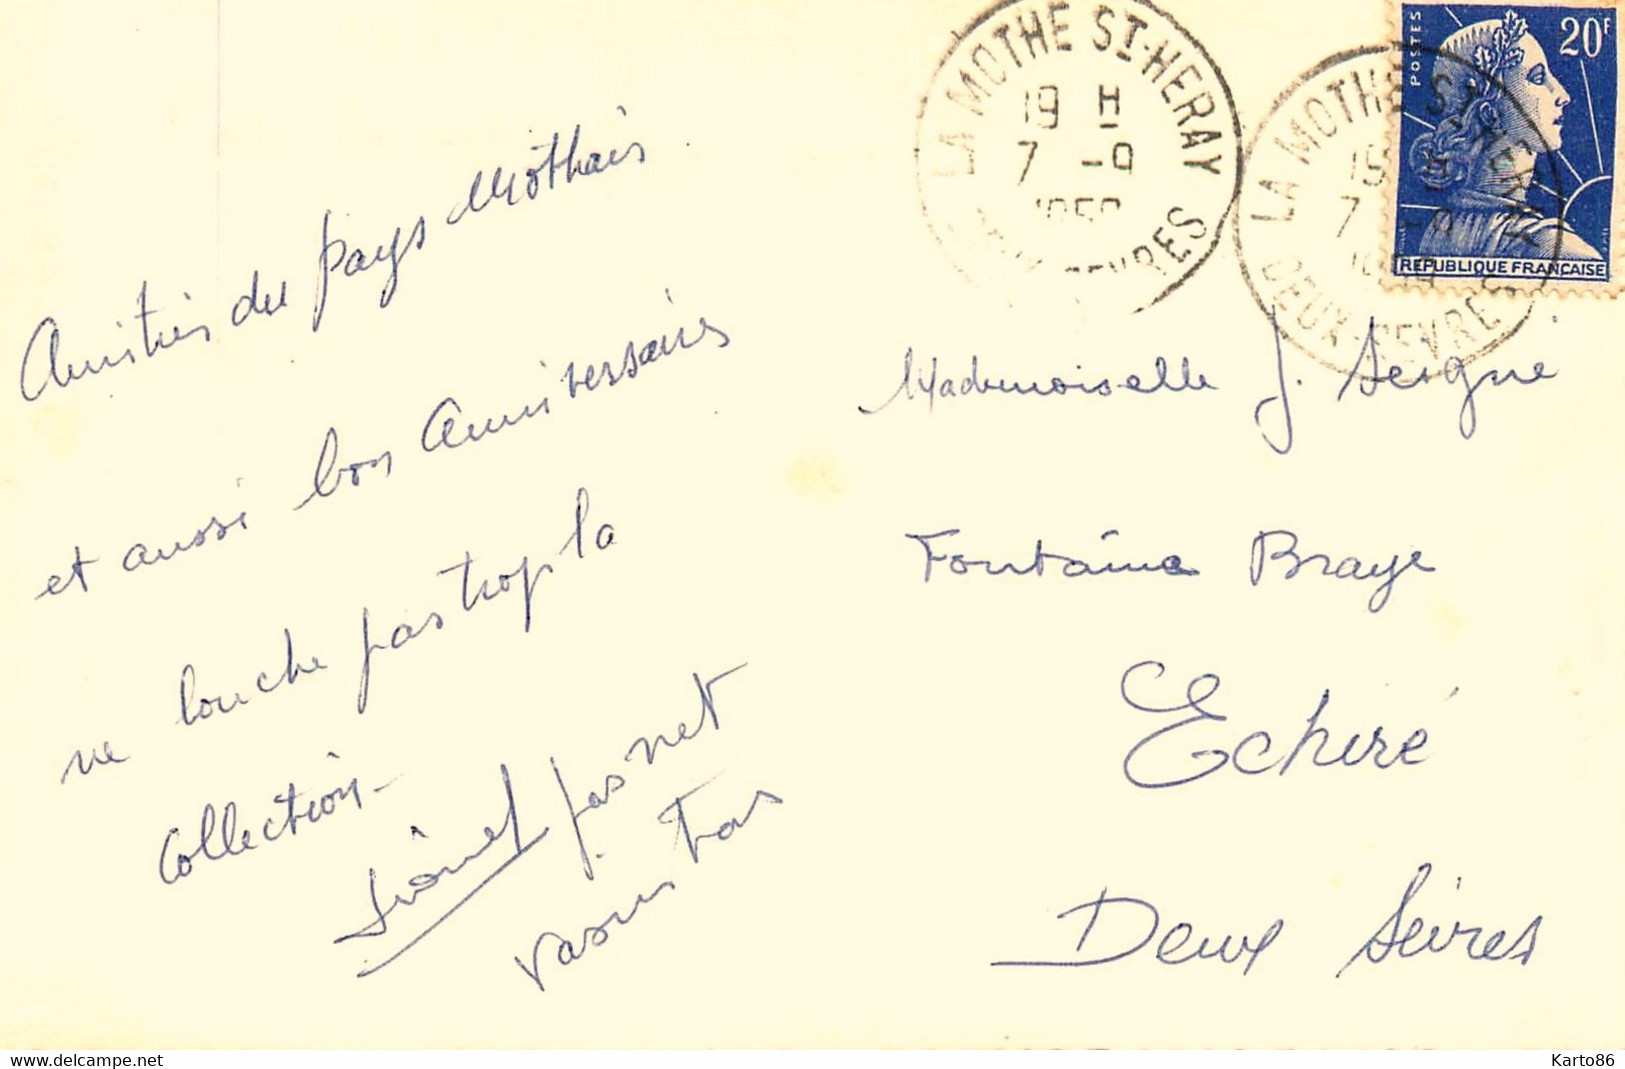 Amitiés du pays Mothais
et aussi bon Anniversaire
ne louche pas trop la
Collection-
Lionel pas net
LA MOTHE ST-HERAY
19 H
7 -9
DEUX-SEVRES
LA MOTHE ST-HERAY
19 H
7 -9
DEUX-SEVRES
POSTES
20F
REPUBLIQUE FRANÇAISE
Mademoiselle J. Seigné
Fontaine Braye
Echiré
Deux Sèvres
delcampe.net
Karto86